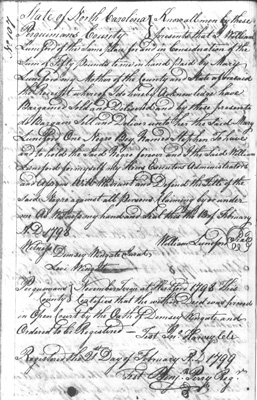 No 107
State of North Carolina } Know all men by these
Perquimans County } presents that I William
Lunsford of the Same Place for and in Consideration of the
Sum of Fifty Pounds to me in hand paid by Mary
Lunsford my Mother of the County and State aforesaid
the Receipt whereof I do hereby Acknowledge have
Bargained Sold and Delivered and by these presents
do Bargain Sell and Deliver unto her the Said Mary
Lunsford One Negro Boy Named Stephen To have
and to hold the Said Negro forever and I the Said William
Lunsford for myself My Heirs Executors Administrators
and Assigns Will Warrant and Defend the Title of the
Said Negro against all persons Claiming by or under
me As Witness my hand and Seal this Day February
A D 1798
William Lunsford Seal
Witness Demsey Jurat
Levi Wright
Perquimans } November Term 1798 This
County } Certifies that the within Deed was proved
in Open Court by the Oath of Demsey and
Ordered to be Registered — Test Harvey Clk
Registered the Day of February A D 1799
Test Perry Regr